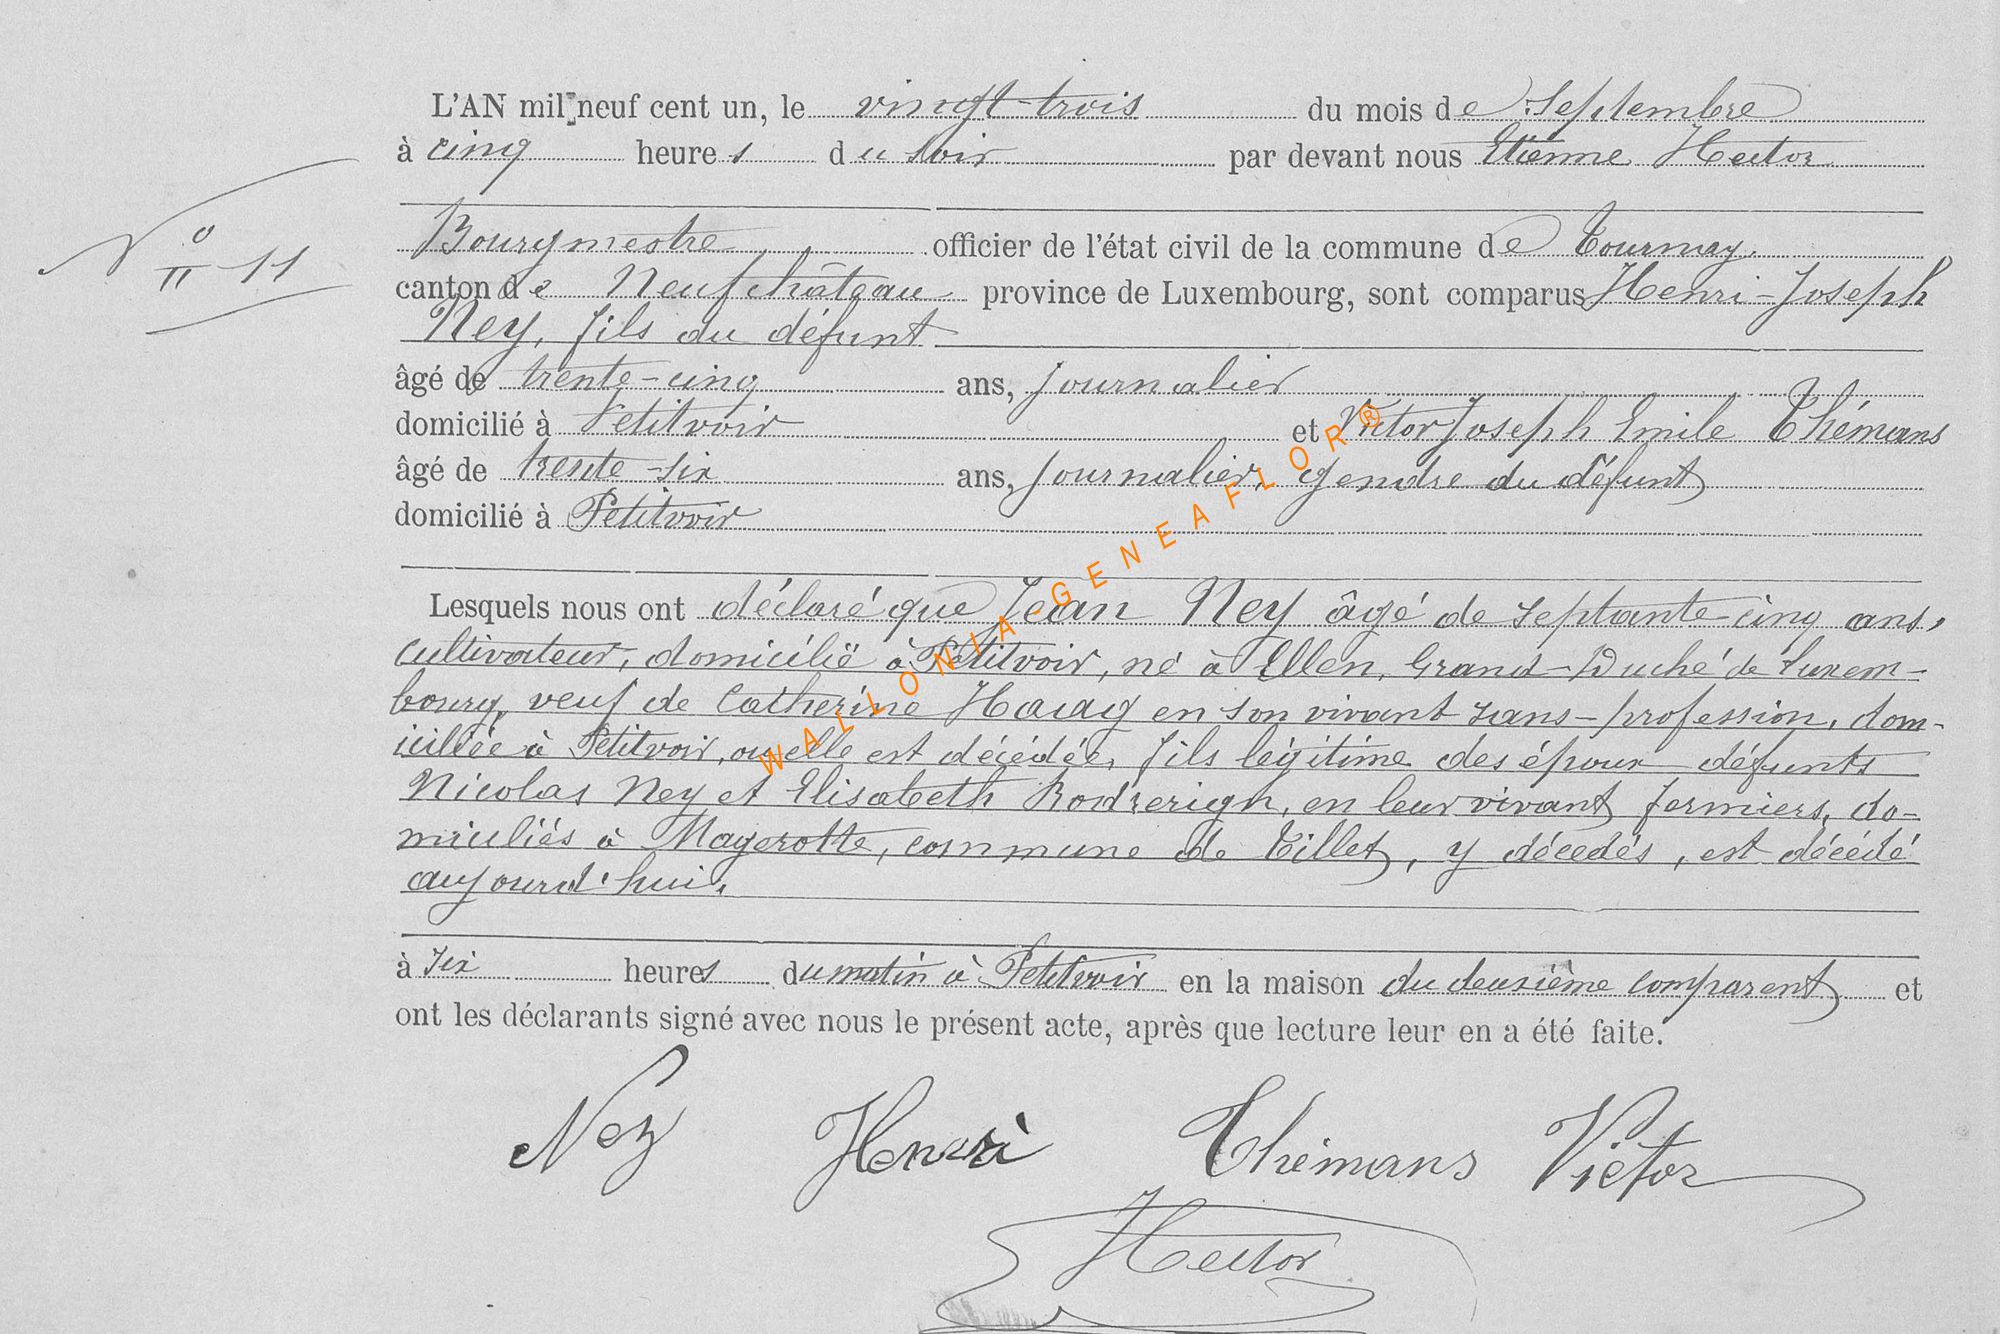 L'AN mil neuf cent un, le vingt-trois du mois de septembre
à cinq heures du soir par devant nous Etienne Hector
N° 11
Bourgmestre officier de l'état civil de la commune de Tournay,
canton de Neufchâteau province de Luxembourg, sont comparus Henri-Joseph
Ney, fils du défunt
âgé de trente-cinq ans, journalier
domicilié à Petitvoir et Victor Joseph Emile Thémans
âgé de trente-six ans, journalier, gendre du défunt
domicilié à Petitvoir
Lesquels nous ont déclaré que Jean Ney âgé de septante-cinq ans,
cultivateur, domicilié à Petitvoir, né à Ellen, Grand-Duché de Luxem-
bourg, veuf de Catherine Haag en son vivant sans-profession, dom-
iciliée à Petitvoir, ou elle est décédée, fils légitime des époux défunts
Nicolas Ney et Elisabeth en leur vivant fermiers, do-
miciliés à Magerotte, commune de Tillet, y décédés, est décédé
aujourd'hui,
à six heures du matin à Petitvoir en la maison du deuxième comparent et
ont les déclarants signé avec nous le présent acte, après que lecture leur en a été faite.
Ney Henri Thémans Victor
Hector
WALLONIA-GENEAFLOR®